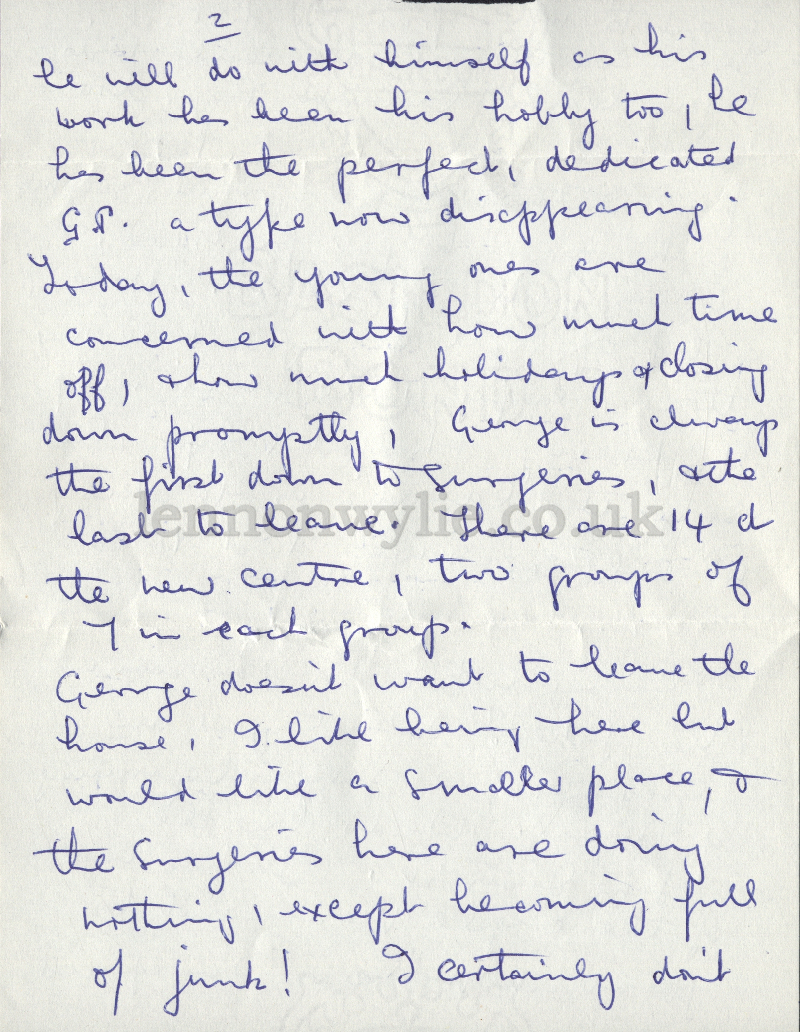 2
he will do with himself as his
work has been his hobby too, he
has been the perfect, dedicated
G.P. a type now disappearing.
Today, the young ones are
concerned with how much time
off, & how much holidays & closing
down promptly, George is always
the first down to Surgeries, & the
last to leave. There are 14 at
the new centre, two groups of
7 in each group.
George doesn't want to leave the
house, I like being here but
would like a smaller place, &
the Surgeries here are doing
nothing, except becoming full
of junk! I certainly don't
lennonwylie.co.uk